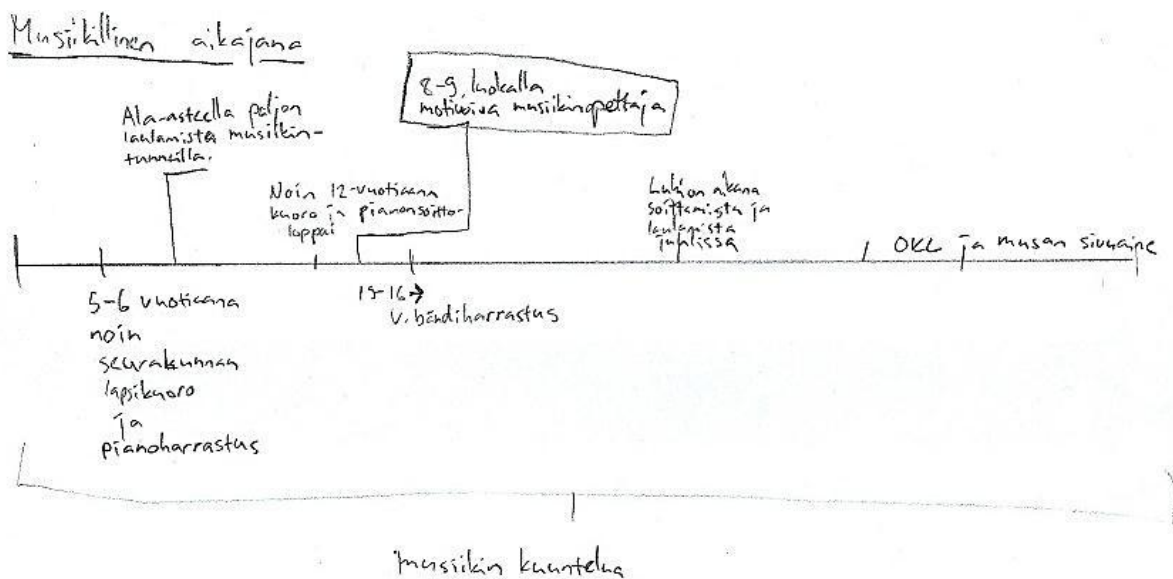 Musiikillinen aikajana
8-9. luokalla
motivoiva musiikinopettaja
Ala-asteella paljon
laulamista musiikin-
tunneilla.
Noin 12-vuotiaana
kuoro ja pianonsoitto-
loppui
Lukion aikana
soittamista ja
laulamista
juhlissa
OKL ja musan sivuaine
5-6 vuotiaana
noin
seurakunnan
lapsikuoro
ja
pianoharrastus
15-16 →
v. bändiharrastus
musiikin kuuntelua